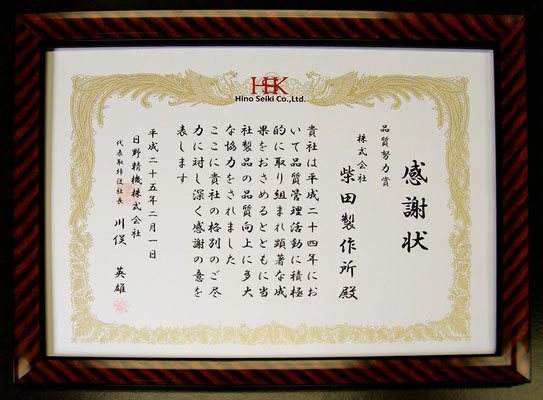 HSK
Hino Seiki Co.,Ltd.
感謝状
品質努力賞
株式会社
柴田製作所 殿
貴社は平成二十四年にお
いて品質管理活動に積極
的に取り組まれ顕著な成
果をおさめるとともに当
社製品の品質向上に多大
な協力をされました
ここに貴社の格別のご尽
力に対し深く感謝の意を
表します
平成二十五年二月一日
日野精機株式会社
代表取締役社長 川俣 英雄